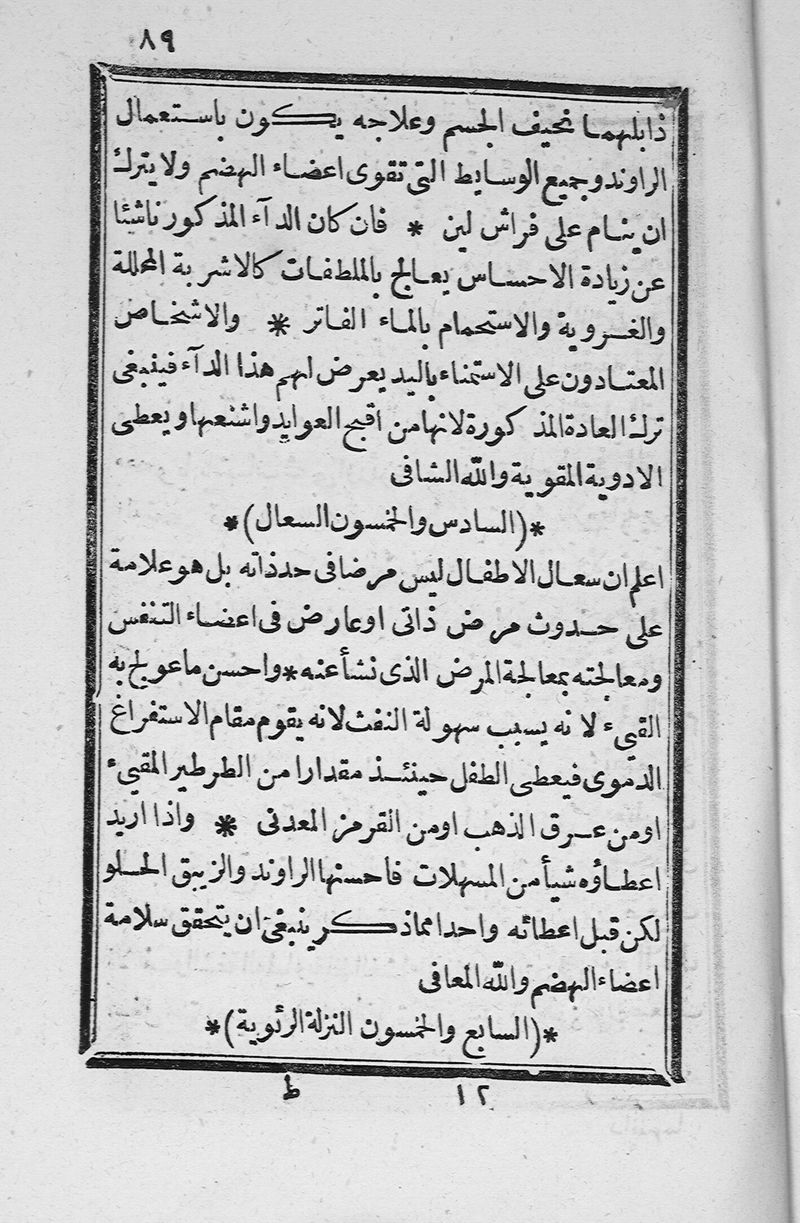 ٨٩
ذابلهما نحيف الجسم وعلاجه يكون باستعمال
الراوند وجميع الوسايط التى تقوى اعضاء الهضم ولا يترك
ان ينام على فراش لين * فان كان الدآء المذكور ناشئا
عن زيادة الاحساس يعالج بالملطفات كالاشربة المحللة
والغروية والاستحمام بالماء الفاتر * والاشخاص
المعتادون على الاستمناء باليد يعرض لهم هذا الدآء فينبغى
ترك العادة المذكورة لانها من اقبح العوايد واشنعها ويعطى
الادوية المقوية والله الشافى
*(السادس والخمسون السعال)*
اعلم ان سعال الاطفال ليس مرضا فى حد ذاته بل هو علامة
على حدوث مرض ذاتى او عارض فى اعضاء التنفس
ومعالجته بمعالجة المرض الذى نشأ عنه * واحسن ما عولج به
القيء لانه يسبب سهولة النفث لانه يقوم مقام الاستفراغ
الدموى فيعطى الطفل حينئذ مقدارا من الطرطير المقيء
او من عرق الذهب او من القرمز المعدنى * واذا اريد
اعطاؤه شيأ من المسهلات فاحسنها الراوند والزيبق الحلو
لكن قبل اعطائه واحدا مما ذكر ينبغى ان يتحقق سلامة
اعضاء الهضم والله المعافى
*(السابع والخمسون النزلة الرئوية)*
١٢ ط